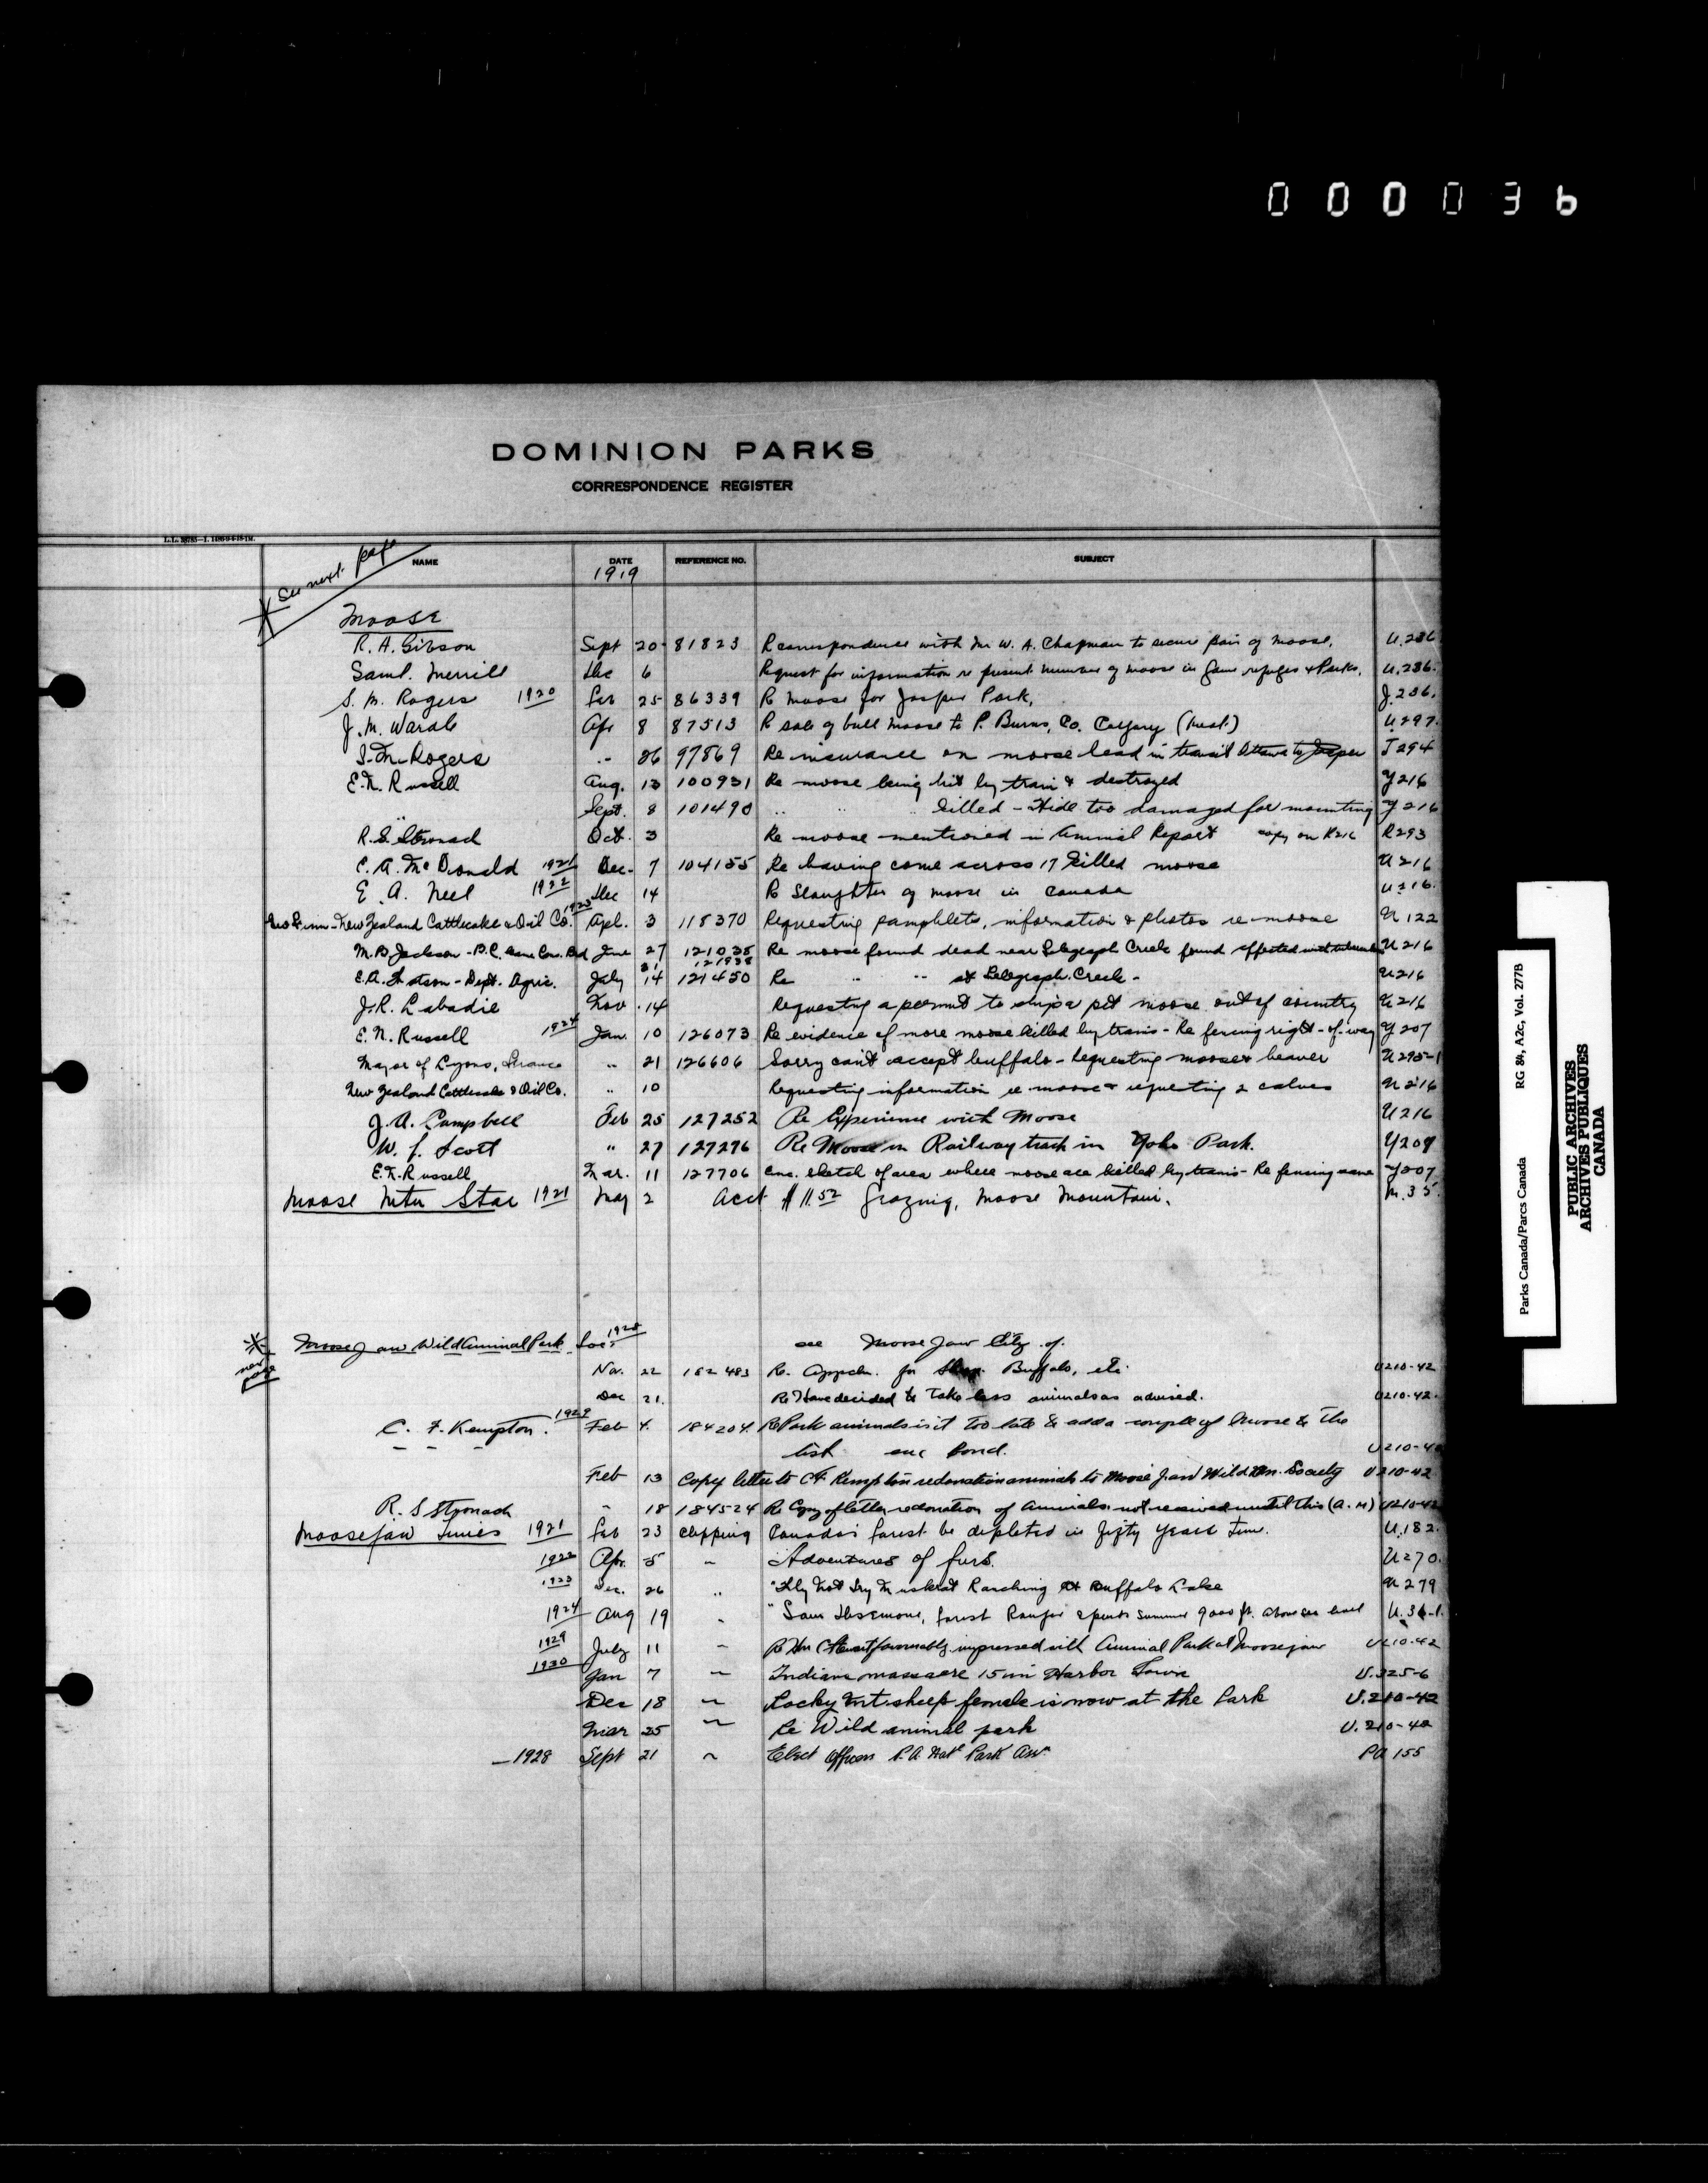 000036
DOMINION PARKS
CORRESPONDENCE REGISTER
NAME DATE REFERENCE NO. SUBJECT
1919
See next page
Moose
R. A. Gibson Sept 20 81823 R correspondence with Mr W. A. Chapman to secure pair of moose. U.236
Saml. Merrill Dec 6 Request for information re present number of moose in game refuges & Parks. U.236.
S. M. Rogers 1920 Feb 25 86339 R moose for Jasper Park, J.236.
J. M. Wardle Apr 8 87513 R sale of bull moose to P. Burns, Co. Calgary U.297.
S. M. Rogers 26 97869 Re insurance on moose head in transit Ottawa to Jasper J294
E. N. Russell Aug. 13 100931 Re moose being hit by train & destroyed Y216
Sept. 8 101490 .. .. .. killed - Hide too damaged for mounting Y216
R. S. Stronach Oct. 3 Re moose mentioned in Annual Report copy on K216 R293
C. A. McDonald 1921 Dec. 7 104155 Re having come across 17 killed moose U216
E. A. Neel 1922 Dec 14 R Slaughter of moose in Canada U216.
New Zealand Cattlecake & Oil Co. 1923 Apl. 3 118370 Requesting pamphlets, information & photos re moose U122
M. B. Jackson - B.C. Game Con. Bd June 27 121035 Re moose found dead near Telegraph Creek found affected with U216
31 121938
Dept. Agric. July 14 121450 Re .. .. at Telegraph Creek - U216
J. R. Labadie Nov. 14 Requesting a permit to ship a pet moose out of country U216
E. N. Russell 1924 Jan. 10 126073 Re evidence of more moose killed by trains - Re fencing right-of-way Y207
Mayor of Lyons, France .. 21 126606 Sorry can't accept buffalo - Requesting moose & beaver U295-1
New Zealand Cattlecake & Oil Co. .. 10 Requesting information re moose & requesting 2 calves U216
J. A. Campbell Feb 25 127252 Re Experience with Moose U216
W. J. Scott " 27 127276 Re Moose on Railway track in Yoho Park. Y207
E. N. Russell Mar. 11 127706 Enc. sketch of area where moose are killed by trains - Re fencing same Y207
Moose Mtn Star 1921 May 2 Acct $11.52 Grazing, Moose Mountain. M.35.
Moose Jaw Wild Animal Park Soc. 1928 see Moose Jaw City of.
next page
Nov. 22 182483 Re. for Buffalo, etc. U210-42
Dec 21. Re Have decided to take less animals as advised. U210-42.
C. F. Kempton. 1929 Feb 4. 184204 Re Park animals is it too late to add a couple of Moose to the
list enc Bond. U210-42
Feb 13 Copy letter to C F Kempton re donation animals to Moose Jaw Wild An. Society U210-42
R. S Stronach " 18 184524 Re Copy of letter re donation of animals not received until this (A.M) U210-42
Moosejaw Times 1921 Feb 23 clipping Canada's forest be depleted in fifty years time. U.182.
1922 Apr. 5 " Adventures of furs. U270.
1923 Dec. 26 .. "Why Not Try Muskrat Ranching At Buffalo Lake U279
1924 Aug 19 " "Sam Forest Ranger spends summer 9000 ft. above sea level U.36-1.
1929 July 11 " Re Hon C Stewart favourably impressed with Animal Park at Moosejaw U210-42
1930 Jan 7 " Indians massacre 15 in Harbor Town U.325-6
Dec 18 " Rocky Mt. sheep female is now at the Park U.210-42
Mar 25 " Re Wild animal park U.210-42
1928 Sept 21 " Elect Officers P.A. Natl Park Assn. PA 155
Parks Canada/Parcs Canada RG 84, A2c, Vol. 2778
PUBLIC ARCHIVES
ARCHIVES PUBLIQUES
CANADA